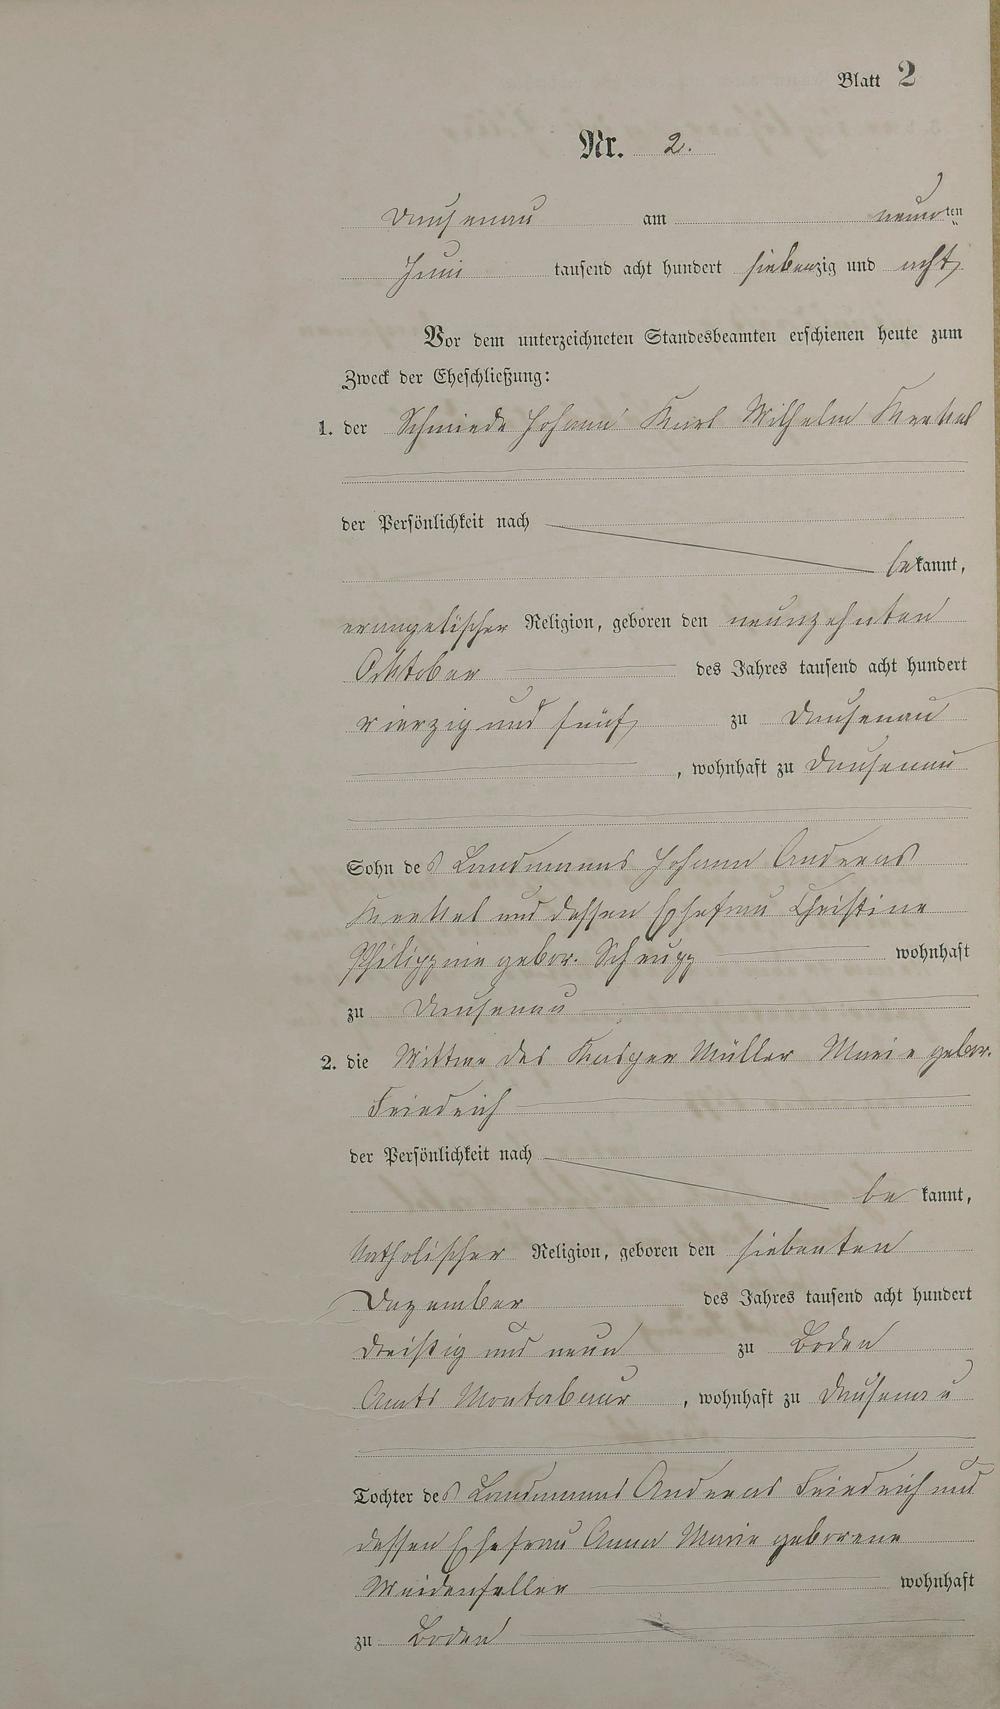 Blatt 2
Nr. 2.
Dausenau am neunten
Juni tausend acht hundert siebenzig und acht
Vor dem unterzeichneten Standesbeamten erschienen heute zum
Zweck der Eheschließung:
1. der Schmiede Johann Karl Wilhelm
der Persönlichkeit nach
bekannt,
evangelischer Religion, geboren den neunzehnten
Oktober des Jahres tausend acht hundert
vierzig und fünf zu Dausenau
, wohnhaft zu Dausenau
Sohn des Landmanns Johann Andreas
und dessen Ehefrau Christine
Philippine gebor. wohnhaft
zu Dausenau
2. die Wittwe des Kasper Müller Marie gebor.
Friedrich
der Persönlichkeit nach
bekannt,
katholischer Religion, geboren den siebenten
Dezember des Jahres tausend acht hundert
dreißig und neun zu Boden
Amts Montabaur , wohnhaft zu Dausenau
Tochter des Landmanns Andreas Friedrich und
dessen Ehefrau Anna Marie geborene
Meidenfeller wohnhaft
zu Boden